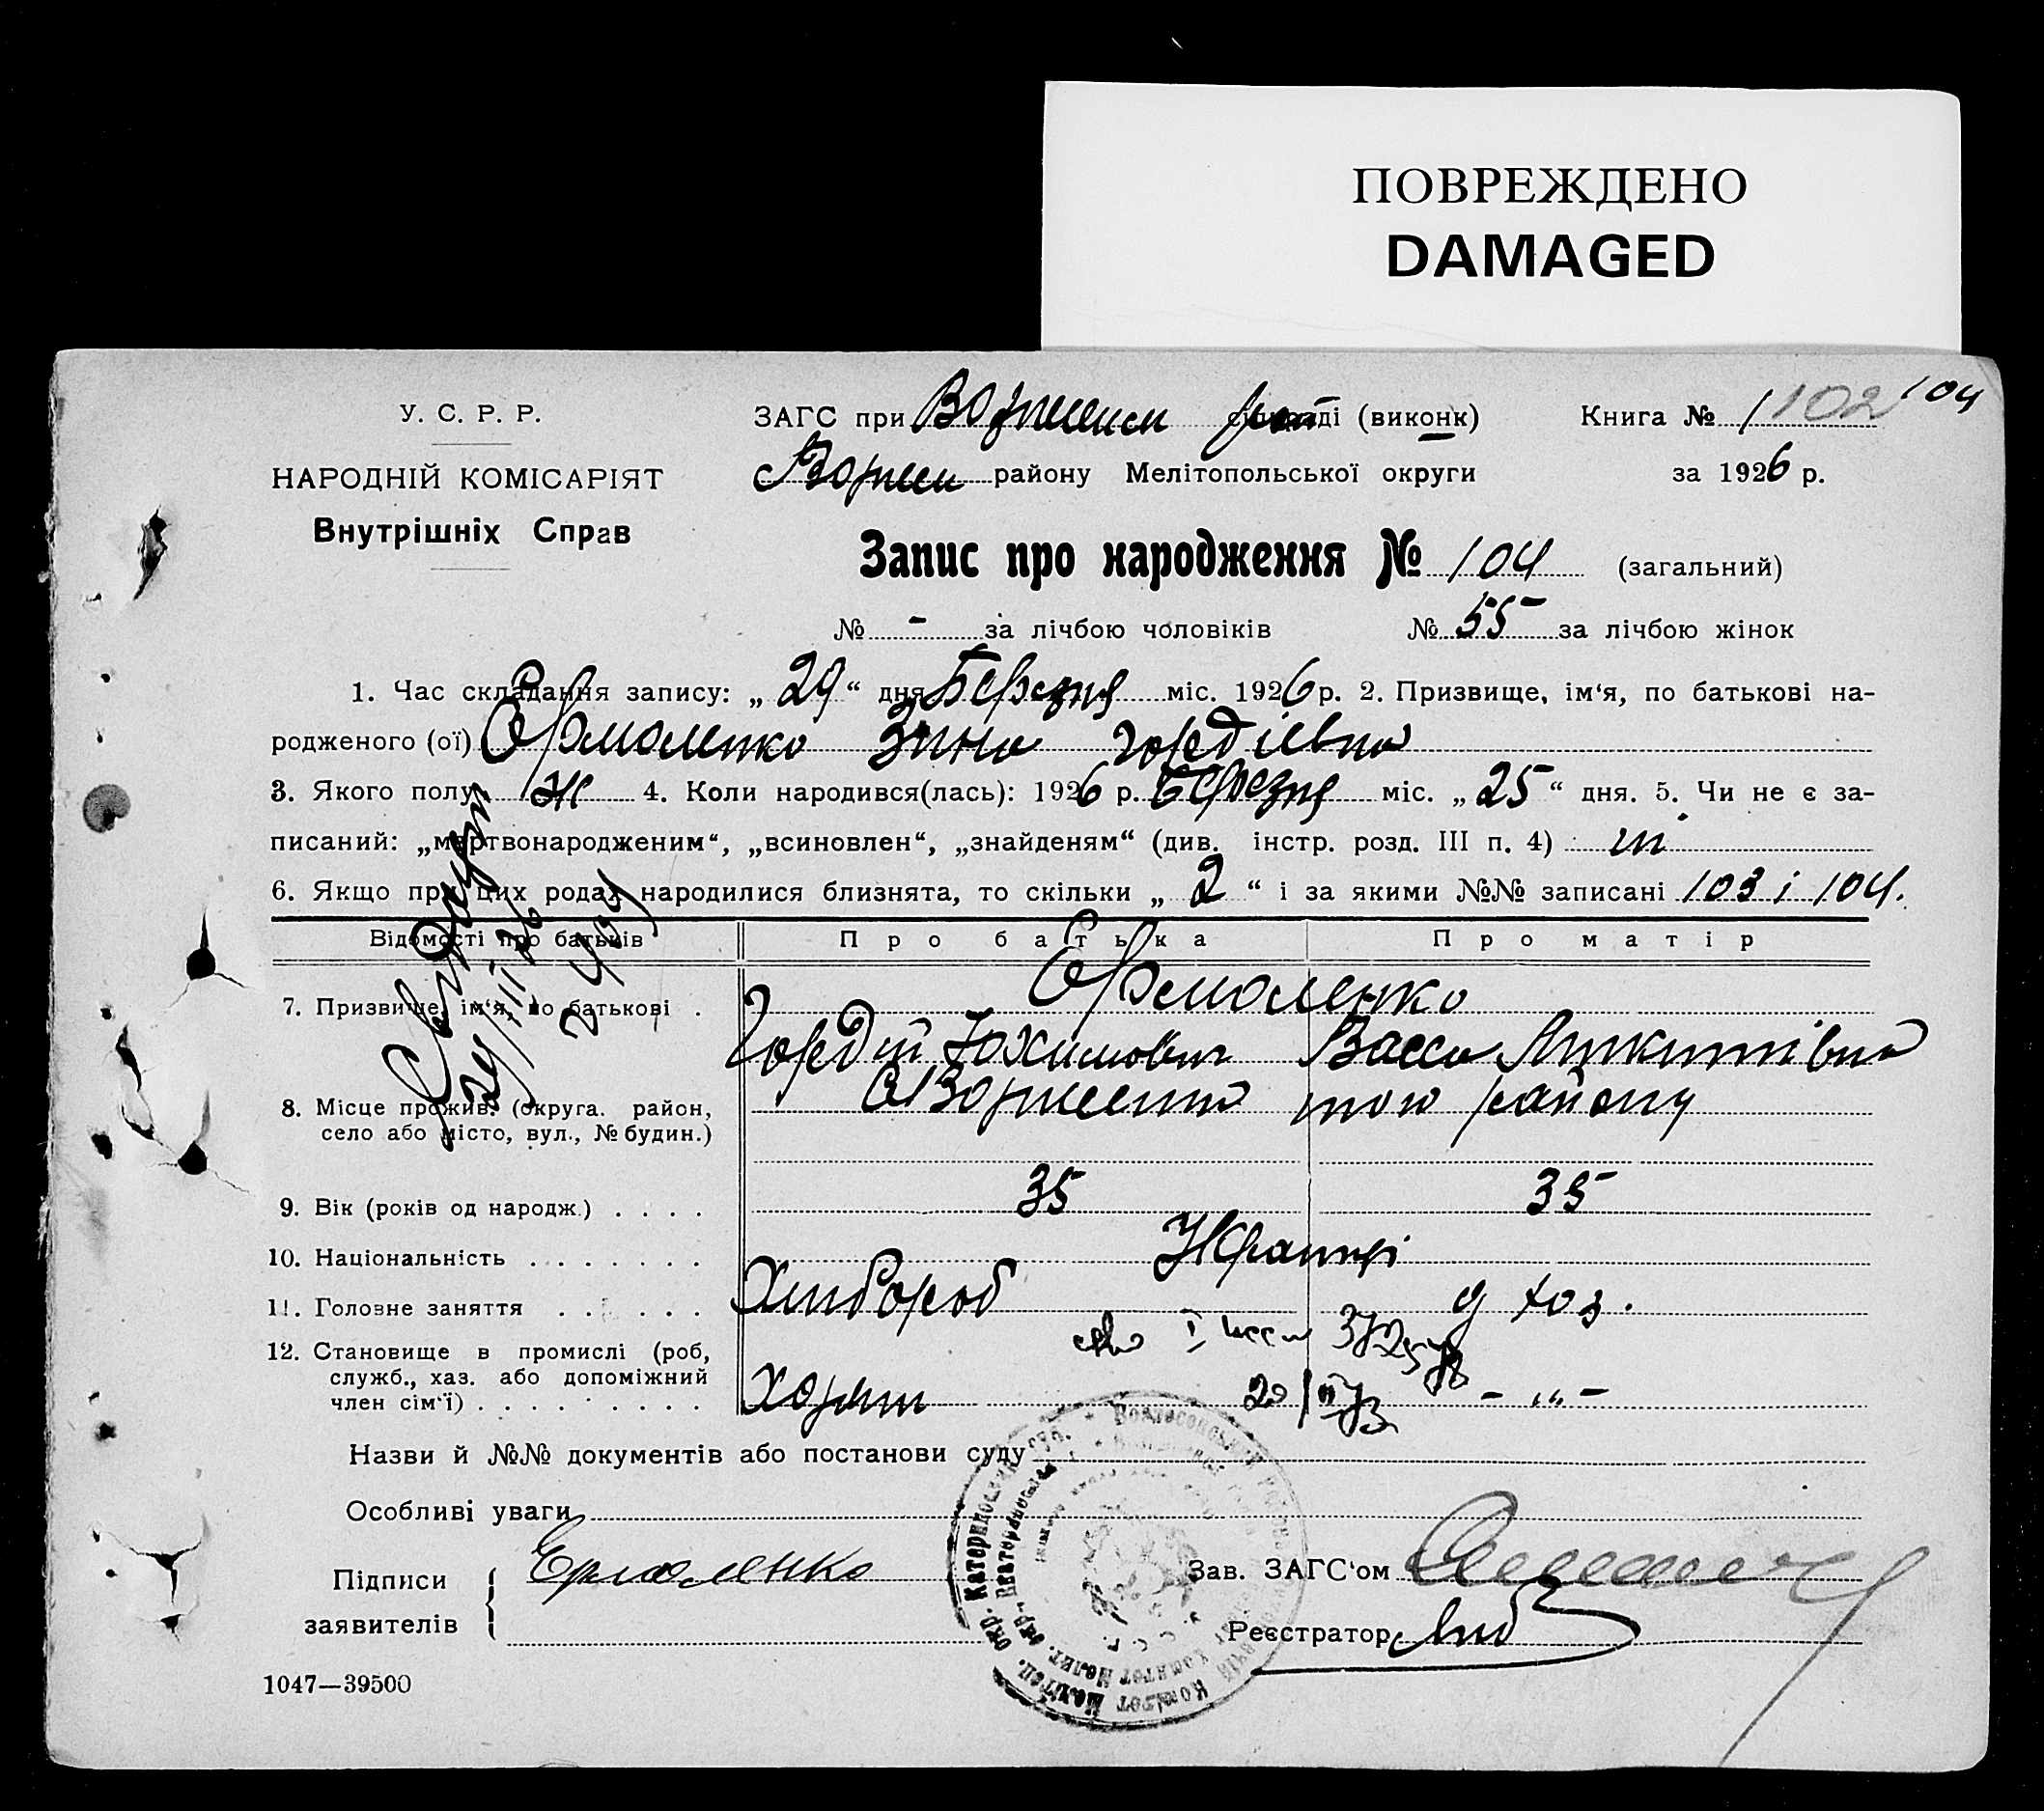 ПОВРЕЖДЕНО
DAMAGED
У. С. Р. Р.
НАРОДНІЙ КОМІСАРІЯТ
Внутрішніх Справ
ЗАГС при (виконк) Книга № 1 102 104
району Мелітопольської округи за 1926 р.
Запис про народження № 104 (загальний)
№ - за лічбою чоловіків № 55 за лічбою жінок
1. Час складання запису: „ 29 “ дня Березня міс. 1926 р. 2. Призвище, ім‘я, по батькові на-
родженого (ої) Єрмоленко Зина Гордіевна
3. Якого полу ж 4. Коли народився(лась): 1926 р. Березня міс. „ 25 “ дня. 5. Чи не є за-
писаний: „мертвонародженим“, „всиновлен“, „знайденям“ (див. інстр. розд. III п. 4)
6. Якщо при цих родах народилися близнята, то скільки „ 2 “ і за якими №№ записані 103 і 104.
Відомості про батьків Про батька Про матір
7. Призвище, ім‘я, по батькові . Єрмоленко
Гордій Юхимович Васса Микитівна
8. Місце прожив. (округа. район, того району
село або місто, вул., № будин.)
9. Вік (років од народж.) . . . . 35 35
10. Національність . . . . . . . Українці
11. Головне заняття . . . . . . Хлибороб д хоз.
12. Становище в промислі (роб,
служб., хаз. або допоміжний
член сім‘ї) . . . . . . . . . - „ -
Назви й №№ документів або постанови суду
Особливі уваги
Підписи Ермоленко Зав. ЗАГС‘ом
заявителів Реєстратор
1047—39500